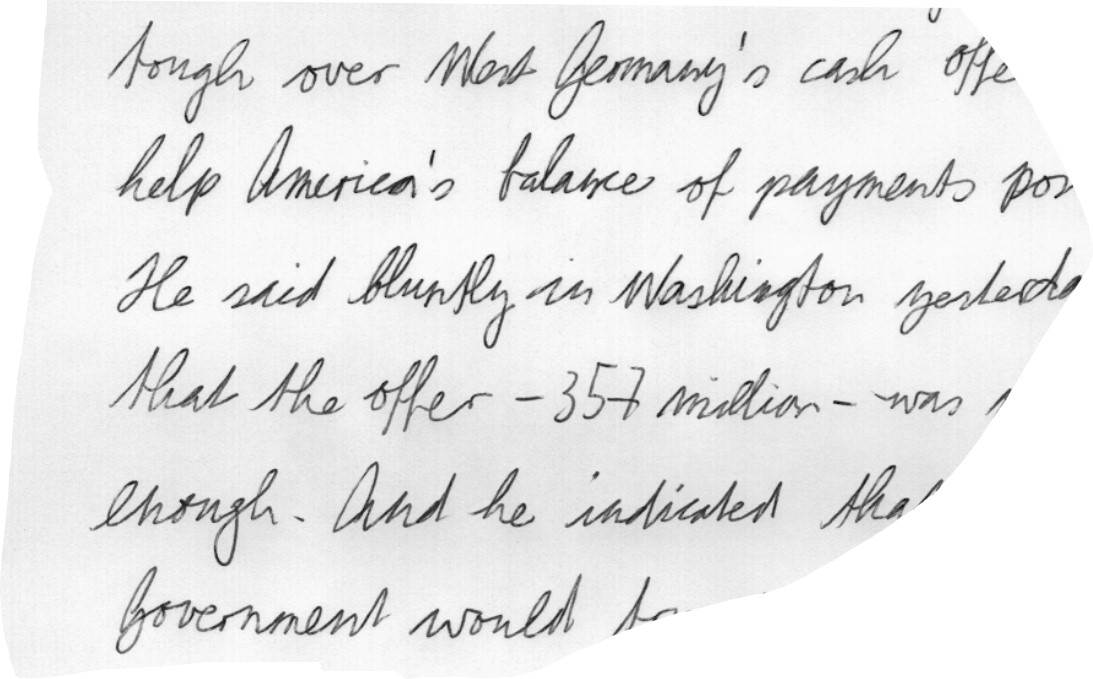 tough over West Germany's cash
help America's balance of payments
He said bluntly in Washington
that the offer - 357 million - was
enough. And he indicated
Government would